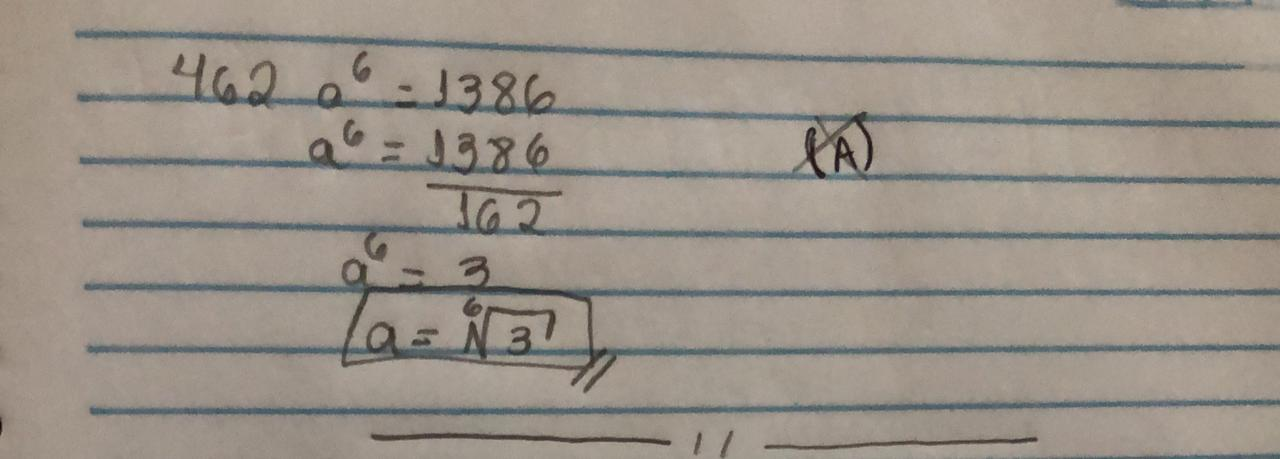 462 a⁶ = 1386
a⁶ = 1386 (A)
162
a⁶ = 3
a = ⁶√3